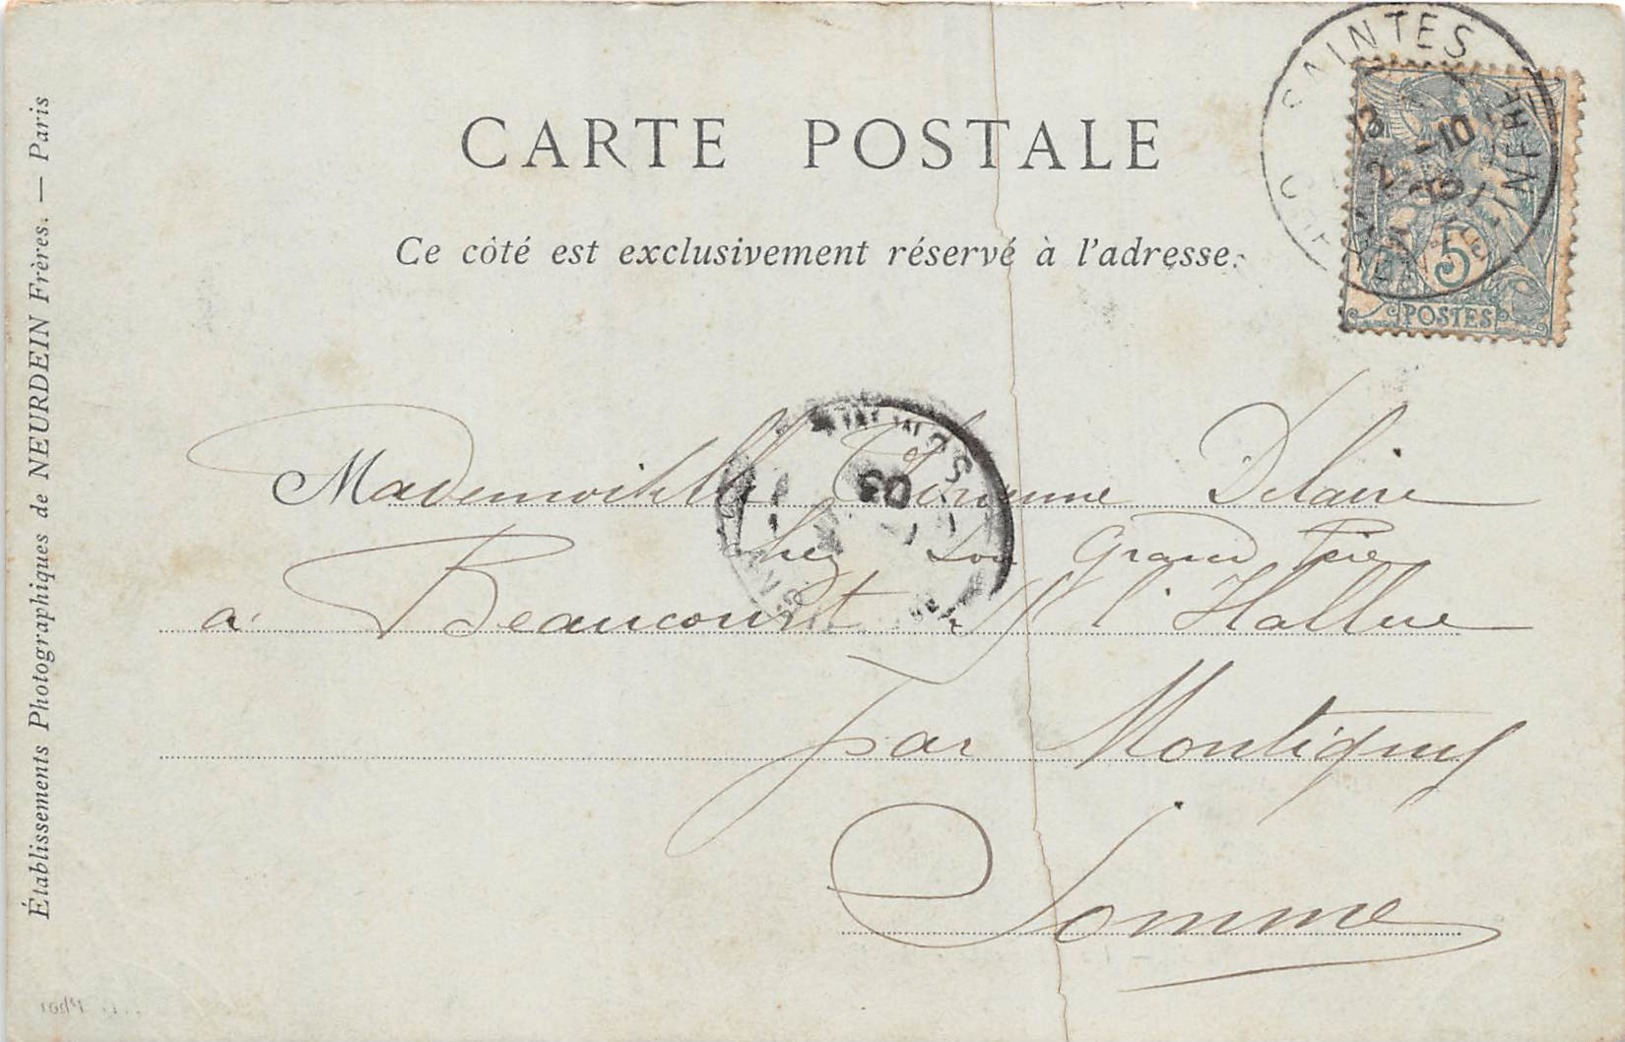 CARTE POSTALE
Ce côté est exclusivement réservé à l'adresse.
SAINTES
13
2 -10
03
5
POSTES
SOMME
03
Mademoiselle Delaire
chez Son Grand Père
a Beaucourt l'Hallue
par Montigny
Somme
Établissements Photographiques de NEURDEIN Frères. — Paris